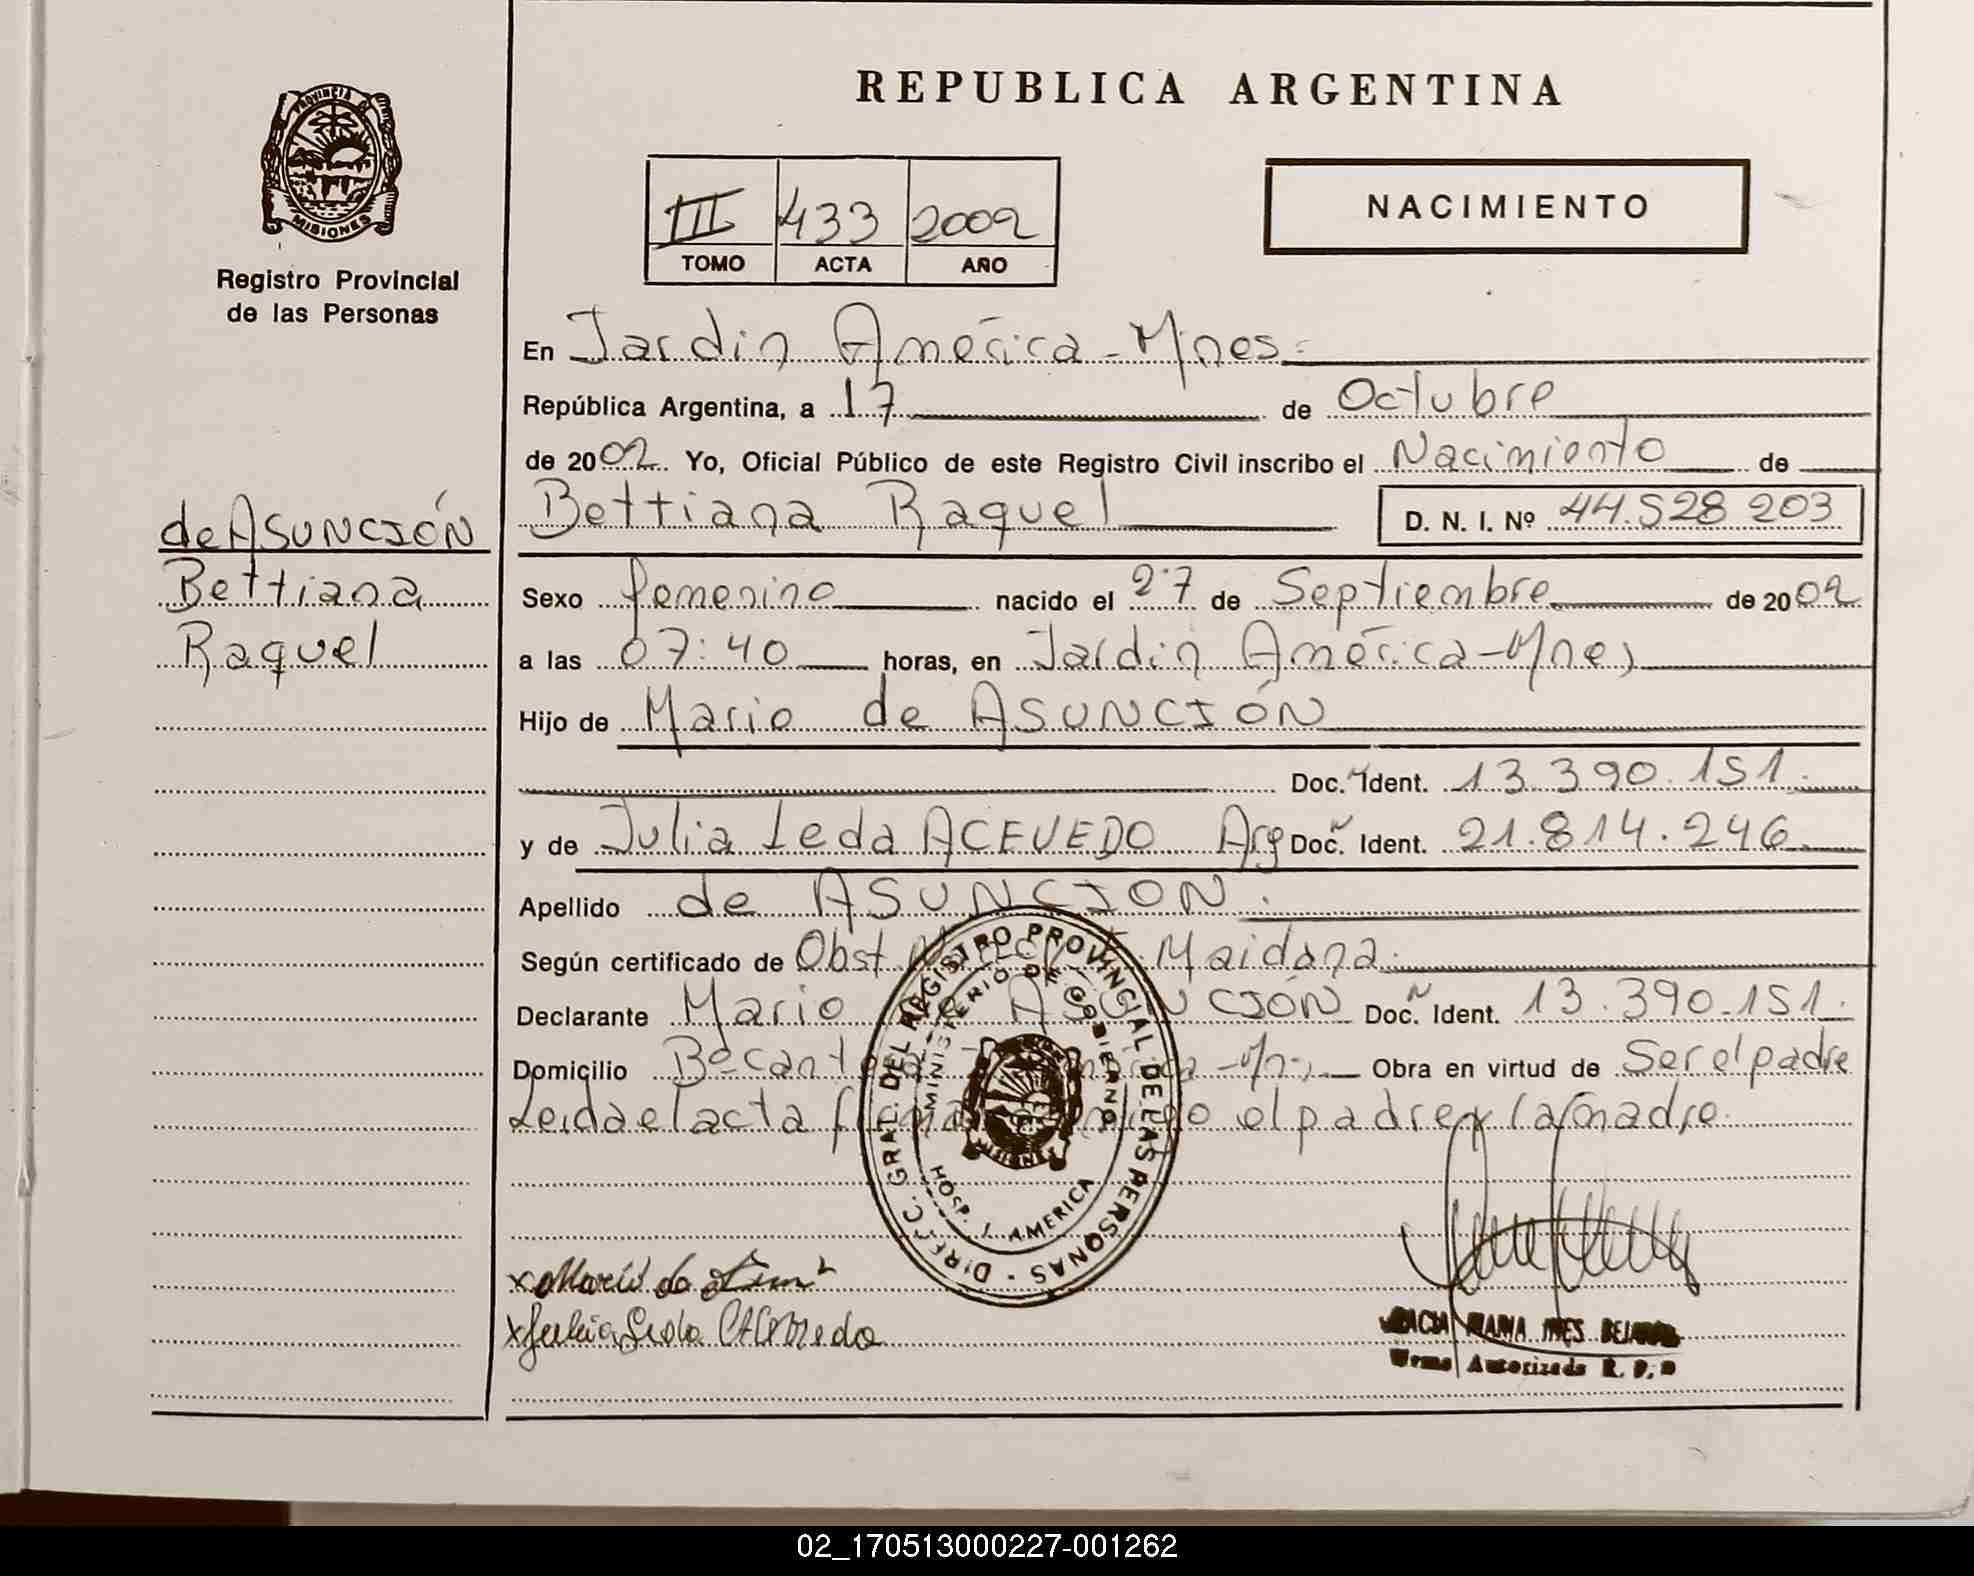 REPUBLICA ARGENTINA
PROVINCIA D
MISIONES
Registro Provincial
de las Personas
III 433 2002
TOMO ACTA AÑO
NACIMIENTO
En Jardin América - Mnes.
República Argentina, a 17 de Octubre
de 2002. Yo, Oficial Público de este Registro Civil inscribo el Nacimiento de
Bettiana Raquel D. N. I. Nº 44.528 203
de ASUNCIÓN
Bettiana
Raquel
Sexo femenino nacido el 27 de Septiembre de 2002
a las 07:40 horas, en Jardin América - Mnes
Hijo de Mario de ASUNCIÓN
Doc. Ident. 13.390.151.
y de Julia Leda ACEVEDO Arg Doc. Ident. 21.814.246
Apellido de ASUNCION.
Según certificado de Obst Maidana.
Declarante Mario de ASUNCIÓN Doc. Ident. 13.390.151.
Domicilio Obra en virtud de Ser el padre
Leida el acta el padre y la madre.
DIREC. GRAL. DEL REGISTRO PROVINCIAL DE LAS PERSONAS
MINISTERIO DE GOBIERNO
HOSP. J. AMERICA
MISIONES
x Mario de
x Julia Leda Acevedo
MARIA INES
Firma Autorizada R. P. P
02_170513000227-001262